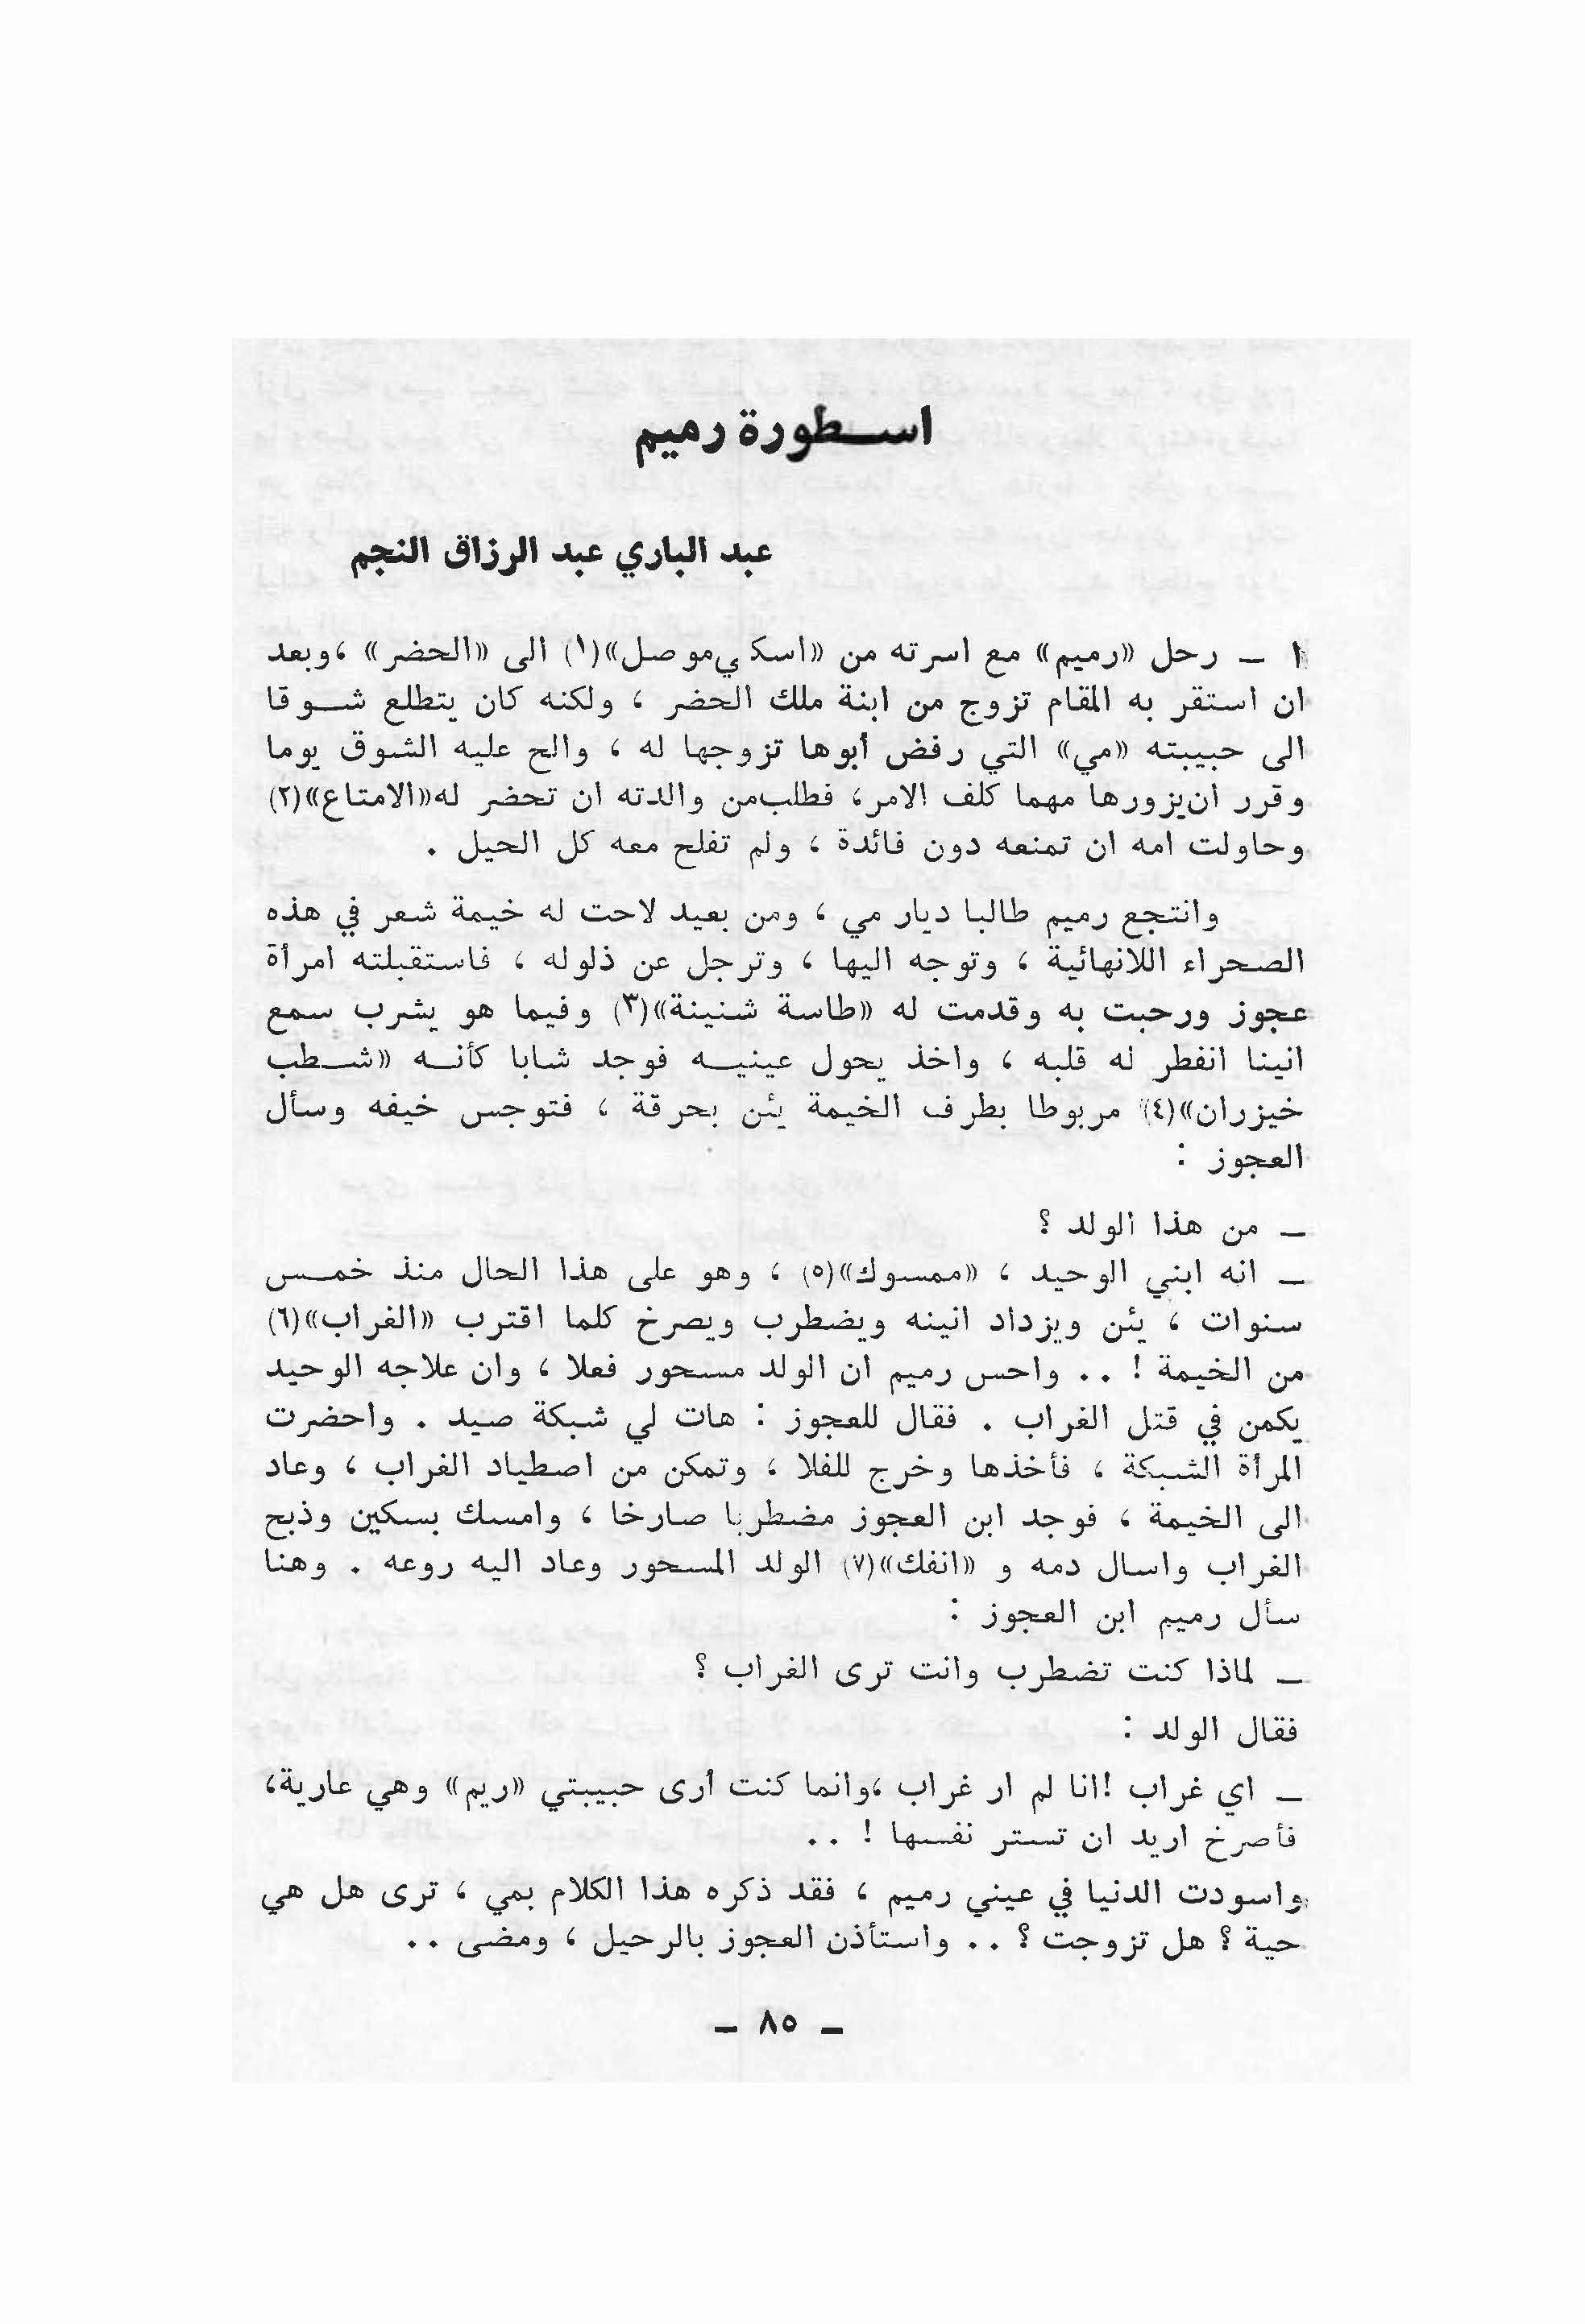 اسطورة رميم
عبد الباري عبد الرزاق النجم
١ – رحل «رميم» مع اسرته من «اسكي موصل»(١) الى «الحضر» ،وبعد
ان استقر به المقام تزوج من ابنة ملك الحضر ، ولكنه كان يتطلع شوقا
الى حبيبته «مي» التي رفض أبوها تزوجها له ، والح عليه الشوق يوما
وقرر ان يزورها مهما كلف الامر، فطلب من والدته ان تحضر له«الامتاع»(٢)
وحاولت امه ان تمنعه دون فائدة ، ولم تفلح معه كل الحيل .
وانتجع رميم طالبا ديار مي ، ومن بعيد لاحت له خيمة شعر في هذه
الصحراء اللانهائية ، وتوجه اليها ، وترجل عن ذلوله ، فاستقبلته امرأة
عجوز ورحبت به وقدمت له «طاسة شنينة»(٣) وفيما هو يشرب سمع
انينا انفطر له قلبه ، واخذ يحول عينيه فوجد شابا كأنه «شطب
خيزران»(٤) مربوطا بطرف الخيمة يئن بحرقة ، فتوجس خيفه وسأل
العجوز :
– من هذا الولد ؟
– انه ابني الوحيد ، «ممسوك»(٥) ، وهو على هذا الحال منذ خمس
سنوات ، يئن ويزداد انينه ويضطرب ويصرخ كلما اقترب «الغراب»(٦)
من الخيمة ! . . واحس رميم ان الولد مسحور فعلا ، وان علاجه الوحيد
يكمن في قتل الغراب . فقال للعجوز : هات لي شبكة صيد . واحضرت
المرأة الشبكة ، فأخذها وخرج للفلا ، وتمكن من اصطياد الغراب ، وعاد
الى الخيمة ، فوجد ابن العجوز مضطربا صارخا ، وامسك بسكين وذبح
الغراب واسال دمه و «انفك»(٧) الولد المسحور وعاد اليه روعه . وهنا
سأل رميم ابن العجوز :
– لماذا كنت تضطرب وانت ترى الغراب ؟
فقال الولد :
– اي غراب !انا لم ار غراب ،وانما كنت أرى حبيبتي «ريم» وهي عارية،
فأصرخ اريد ان تستر نفسها ! . .
واسودت الدنيا في عيني رميم ، فقد ذكره هذا الكلام بمي ، ترى هل هي
حية ؟ هل تزوجت ؟ . . واستأذن العجوز بالرحيل ، ومضى . .
– ٨٥ –